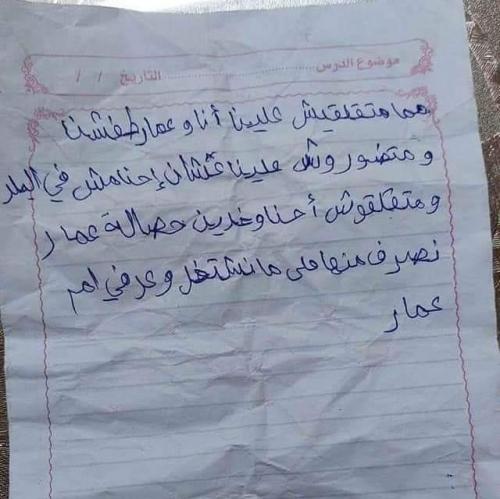 موضوع الدرس ........................ التاريخ / /
مما متقلقيش علينا أنا وعمار طفشنا
ومتضوروش علينا عشان إحنا مش في البلد
ومتقلقوش أحنا وخدين حصالة عمار
نصرف منها على ما نشتغل وعرفي ام
عمار